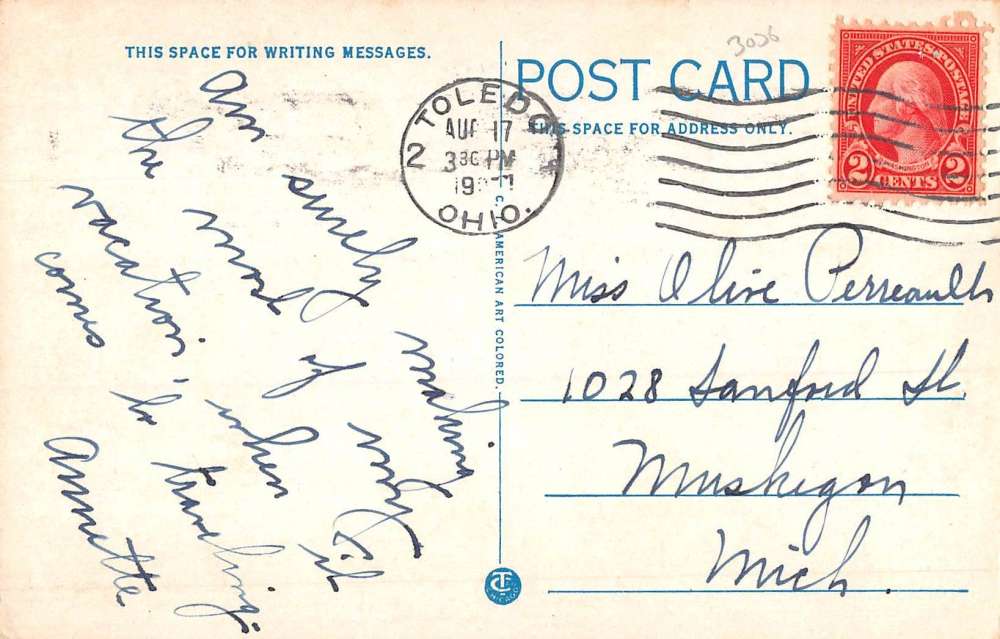 THIS SPACE FOR WRITING MESSAGES.
POST CARD
THIS SPACE FOR ADDRESS ONLY.
TOLEDO
AUG 17
2
PM
OHIO.
UNITED STATES POSTAGE
WASHINGTON
2 CENTS 2
Am surely making
the most of my
vacation, when it
comes to traveling.
Annette
C. T. AMERICAN ART COLORED.
Miss Olive Perreault
1028 Sanford St.
Muskegon
Mich.
CHICAGO